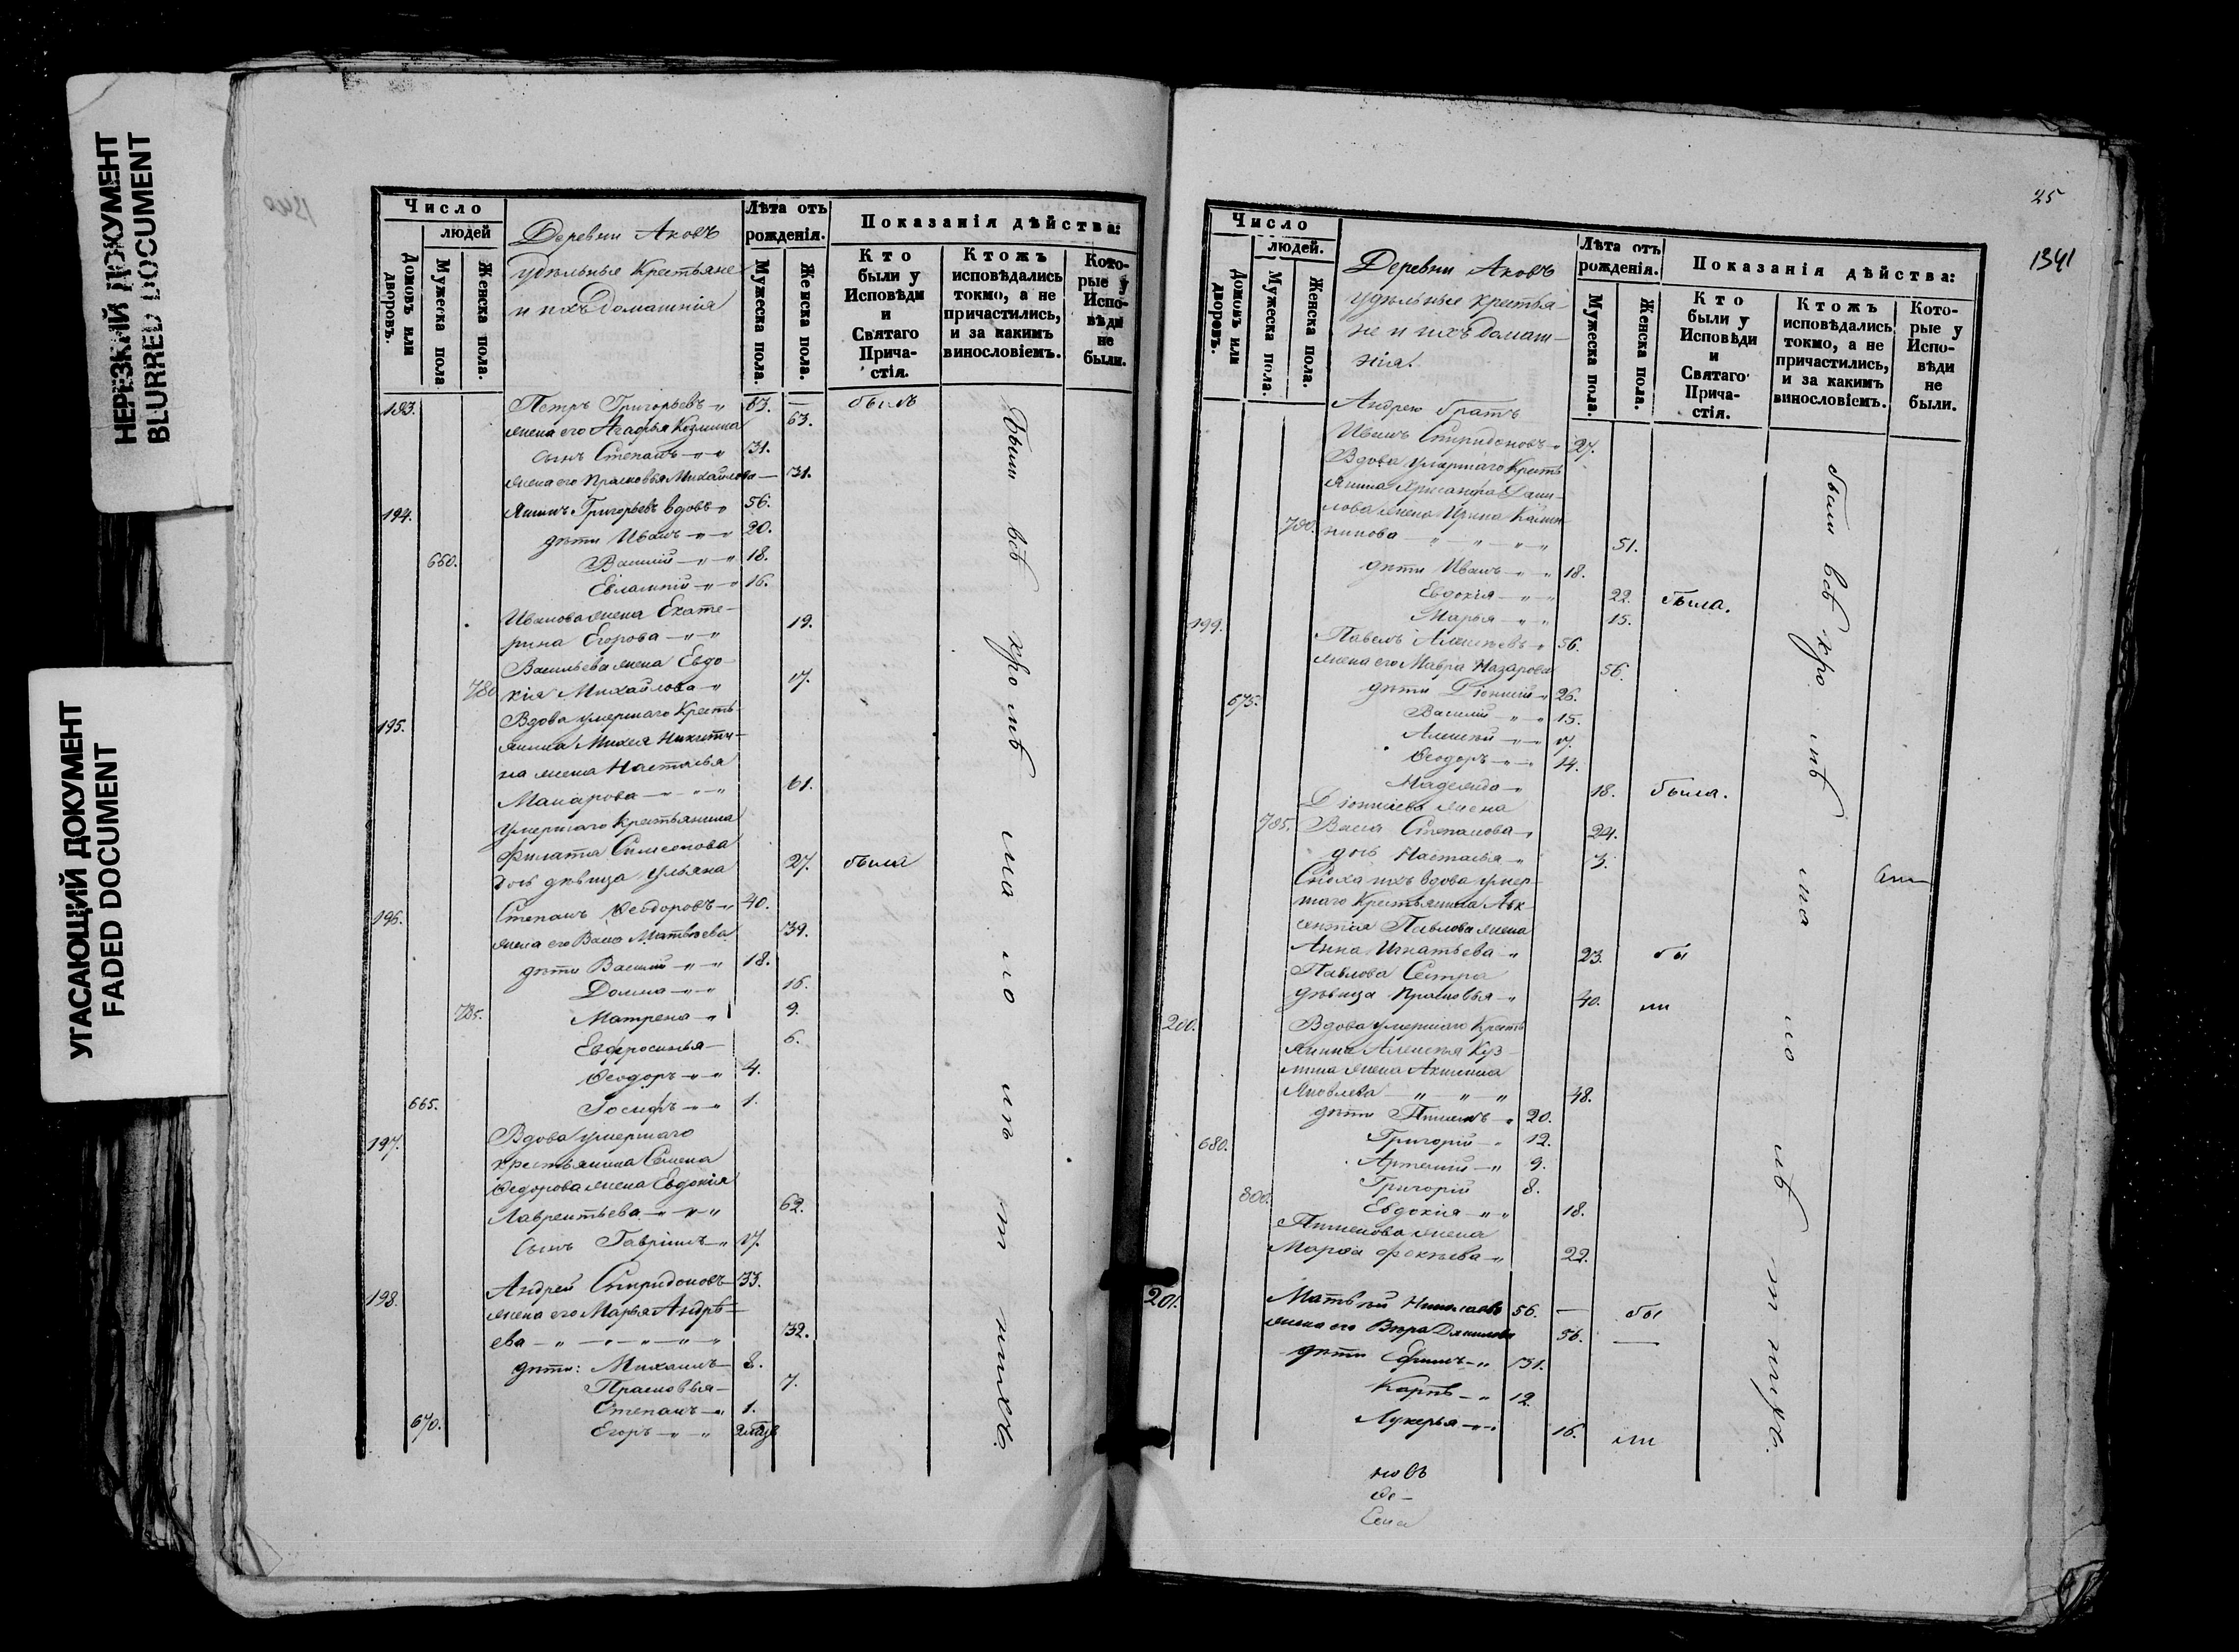 НЕРЕЗКИЙ ДОКУМЕНТ
BLURRED DOCUMENT
УГАСАЮЩИЙ ДОКУМЕНТ
FADED DOCUMENT
1340
Число
людей
Домовъ или дворовъ.
Мужеска пола
Женска пола.
Деревни Аковъ
удѣльные Крестьяне
и ихъ Домашнія
Лѣта отъ рожденія.
Мужеска пола.
Женска пола.
Показанія дѣйства:
Кто были у Исповѣди и Святаго Причастія.
Ктожъ исповѣдались токмо, а не причастились, и за какимъ винословіемъ.
Которые у Исповѣди не были.
193. Петръ Григорьевъ 63. — былъ
жена его Агафья Козмина 63.
сынъ Степанъ 31.
жена его Прасковья Михайлова — 31.
194. Григорьевъ вдовъ 56.
дѣти Иванъ 20.
660. Василий 18.
16.
Иванова жена Екате-
рина Егорова 19.
Васильева жена Евдо-
780 кія Михайлова 17.
195. Вдова умершаго Кресть-
янина Михея Никити-
на жена Настасья
Макарова 61.
умершаго Крестьянина
Филата Симеонова
дочь дѣвица Ульяна 27. была
196. Степанъ Ѳеодоровъ 40.
жена его Васса Матвѣева 39.
дѣти Василий 18.
Домна 16.
785. Матрена 9.
Евфросинья 6.
Ѳеодоръ 4.
665. Іосифъ 1.
197. Вдова умершаго
крестьянина Семена
Ѳедорова жена Евдокія
Лаврентьева 62.
сынъ Гавріилъ 17.
198. Андрей Спиридоновъ 33.
жена его Марья Андрѣ-
ева 32.
дѣти: Михаилъ 8.
Прасковья 7.
Степанъ 1.
670. Егоръ
Были всѣ кромѣ
25
1341
Число
людей.
Домовъ или дворовъ.
Мужеска пола.
Женска пола.
Деревни Аковъ
удѣльные крестья-
не и ихъ домаш-
нія.
Лѣта отъ рожденія.
Мужеска пола.
Женска пола.
Показанія дѣйства:
Кто были у Исповѣди и Святаго Причастія.
Ктожъ исповѣдались токмо, а не причастились, и за какимъ винословіемъ.
Которые у Исповѣди не были.
Андрею братъ
Иванъ Спиридоновъ 27.
Вдова умершаго Кресть
янина Хрисанфа Дани-
лова жена Ирина Калин-
790. никова 51.
дѣти Иванъ 18.
Евдокія 22. была.
Марья 15.
199. Павелъ Алексѣевъ 56.
жена его Мавра Назарова 56.
дѣти Діонисій 26.
675. Василій 15.
Алексѣй 17.
Ѳеодоръ 14.
Надежда 18. была.
Діонисіева жена
785. Васса Степанова 24.
дочь Настасья 3.
Сноха ихъ вдова умер-
шаго Крестьянина Авк-
сентія Павлова жена
Анна Игнатьева 23. бы
Павлова Сестра
дѣвица Прасковья 40. ли
200. Вдова умершаго Кресть
янина Алексѣя Куз-
мина жена Акилина
Яковлева 48.
дѣти Пименъ 20.
680. Григорій 12.
Артемій 9.
Григорій 8.
800. Евдокія 18.
Пименова жена
Марѳа Фокѣева 22.
201. Матвѣй Николаевъ 56. — бы
жена его Вѣра Данилова 56. —
дѣти Ефимъ 31.
Карпъ 12.
Лукерья 16. ли
были всѣ кромѣ